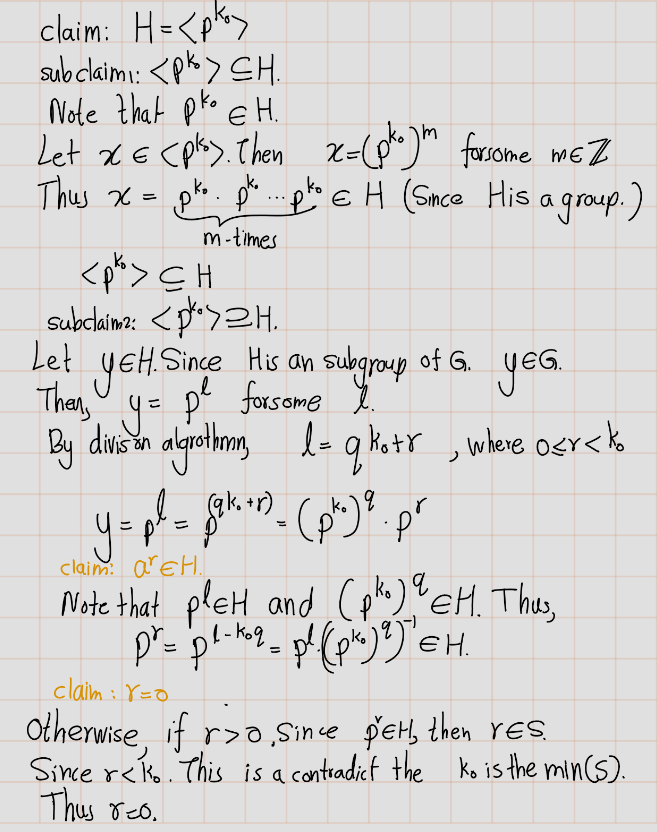 claim: H=<p^{k₀}>
subclaim1: <p^{k₀}> ⊆ H.
Note that p^{k₀} ∈ H.
Let x ∈ <p^{k₀}>. Then x=(p^{k₀})^m forsome m∈ℤ
Thus x = p^{k₀} · p^{k₀} ··· p^{k₀} ∈ H (Since H is a group.)
m-times
<p^{k₀}> ⊆ H
subclaim2: <p^{k₀}> ⊇ H.
Let y∈H. Since H is an subgroup of G. y∈G.
Then, y = p^l forsome l.
By divison algrothmn, l = q k₀+r , where 0≤r<k₀
y = p^l = p^{(qk₀+r)} = (p^{k₀})^q · p^r
claim: a^r∈H.
Note that p^l∈H and (p^{k₀})^q ∈H. Thus,
p^r = p^{l-k₀q} = p^l·(p^{k₀})^q)^{-1} ∈ H.
claim : r=0
Otherwise, if r>0. Since p^r∈H, then r∈S.
Since r<k₀. This is a contradict the k₀ is the min(S).
Thus r=0.